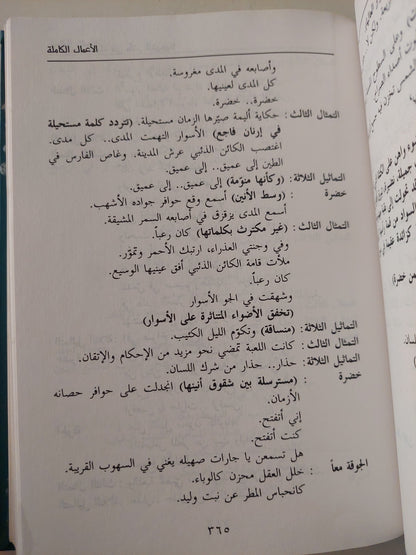 الأعمال الكاملة
وأصابعه في المدى مغروسة.
كل المدى لعينيها.
خضرة.. خضرة.
التمثال الثالث : حكاية أليمة صيّرها الزمان مستحيلة. (تتردد كلمة مستحيلة
في إرنان فاجع) الأسوار التهمت المدى.. كل مدى.
اغتصب الكائن الذئبي عرش المدينة. وغاص الفارس في
الطين إلى عميق.. إلى عميق.
التماثيل الثلاثة: (وكأنها منوّمة) إلى عميق.. إلى عميق.
خضرة : (وسط الأنين) أسمع وقع حوافر جواده الأشهب.
أسمع المدى يزقزق في أصابعه السمر المشيقة.
التمثال الثالث : (غير مكترث بكلماتها) كان رعباً.
وفي وجنتي العذراء، ارتبك الأحمر وتموّر.
ملأت قامة الكائن الذئبي أفق عينيها الوسيع.
كان رعباً.
وشهقت في الجو الأسوار
(تخفق الأضواء المتناثرة على الأسوار)
التماثيل الثلاثة: (منساقة) وتكوّم الليل الكئيب.
التمثال الثالث : كانت اللعبة تمضي نحو مزيد من الإحكام والإتقان.
التماثيل الثلاثة: حذار.. حذار من شرك اللسان.
خضرة : (مسترسلة بين شقوق أنينها) انجدلت على حوافر حصانه
الأزمان.
إني أتفتح.
كنت أتفتح.
هل تسمعن يا جارات صهيله يغني في السهوب القريبة.
الجوقة معاً : خلل العقل محزن كالوباء.
كانحباس المطر عن نبت وليد.
٣٦٥